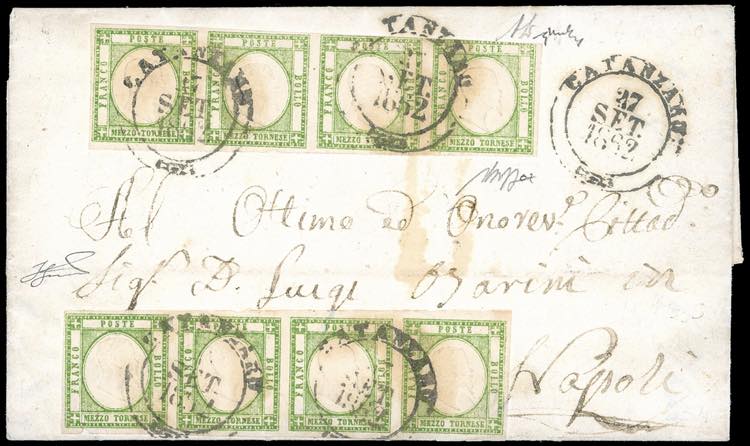 POSTE POSTE POSTE POSTE
FRANCO BOLLO FRANCO BOLLO FRANCO BOLLO FRANCO BOLLO
MEZZO TORNESE MEZZO TORNESE MEZZO TORNESE MEZZO TORNESE
CATANZARO
SET.
1862
CATANZARO
SET.
1862
CATANZARO
27
SET.
1862
Al Ottimo ed Onorev. Cittad.
Sig. D. Luigi Marini in
Napoli
POSTE POSTE POSTE POSTE
FRANCO BOLLO FRANCO BOLLO FRANCO BOLLO FRANCO BOLLO
MEZZO TORNESE MEZZO TORNESE MEZZO TORNESE MEZZO TORNESE
CATANZARO
CATANZARO